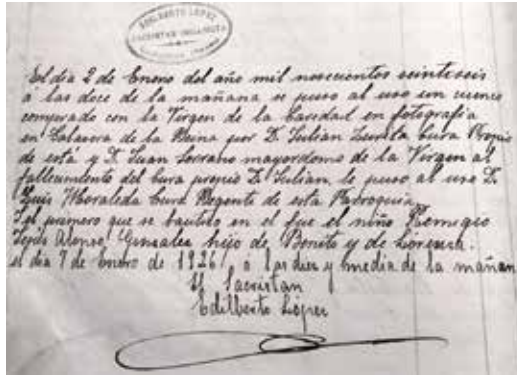 EDILBERTO LOPEZ
SACRISTAN ORGANISTA
El dia 2 de Enero del año mil novecientos veinteseis
á las doce de la mañana se puso al uso un cuenco
comprado con la Virgen de la Caridad en fotografia
en Talavera de la Reina por D. Julian Zurita Cura Propio
de esta y D. Juan Serrano mayordomo de la Virgen al
fallecimento del Cura propio D. Julian le puso al uso D.
Luis Moraleda Cura Regente de esta Parroquia
Y el primero que se bautizo en el fue el niño Remigio
Alonso Gonzalez hijo de Benito y de Lorenza.
el dia 7 de Enero de 1926 á las diez y media de la mañan
El Sacristan
Edilberto López